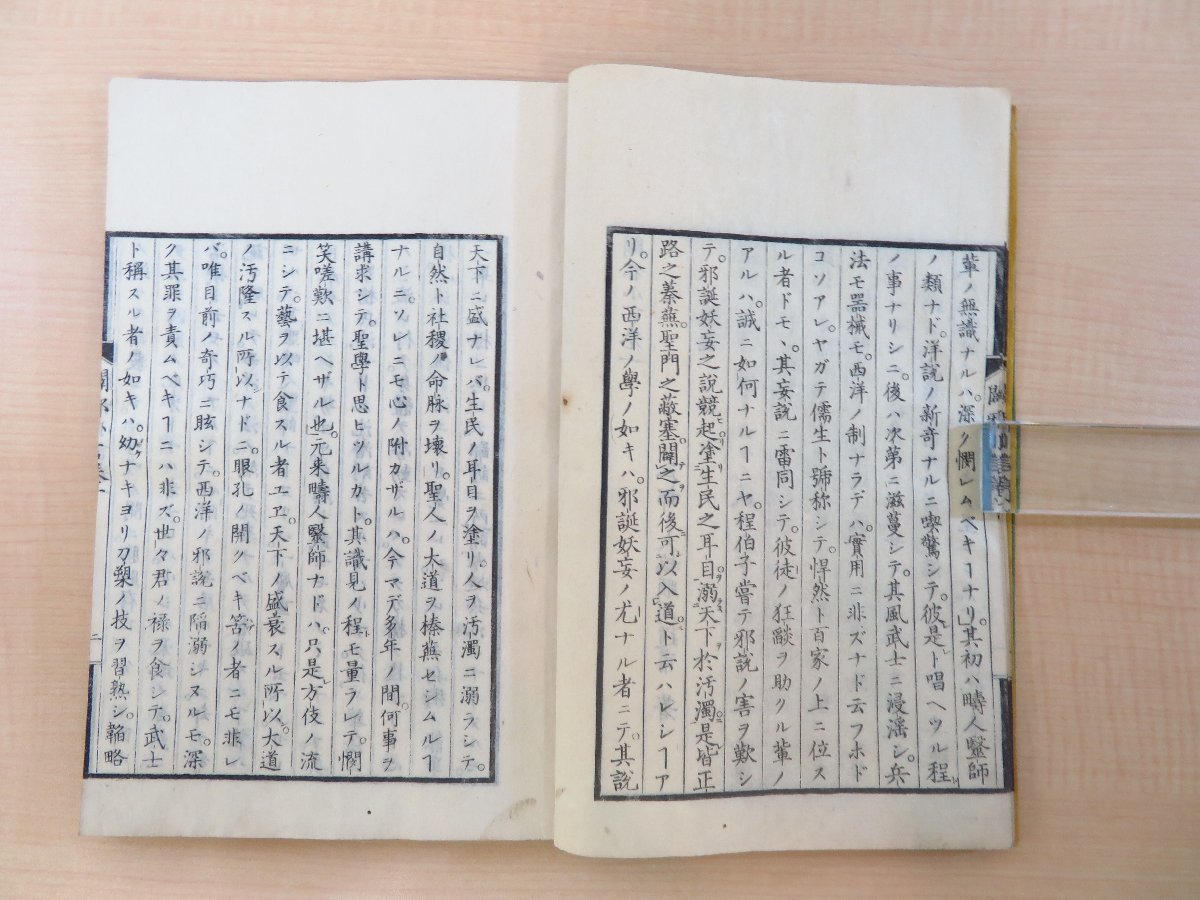 輩ノ無識ナルハ。深ク憫レムベキヿナリ。其初ハ疇人毉師
ノ類ナド。洋説ノ新奇ナルニ喫驚シテ。彼是ト唱ヘツル程
ノ事ナリシニ。後ハ次第ニ滋蔓シテ。其風武士ニ浸滛シ。兵
法モ器械モ。西洋ノ制ナラデハ。實用ニ非ズナド云フホド
コソアレ。ヤガテ儒生ト號称シテ。悍然ト百家ノ上ニ位ス
ル者ドモ、其妄説ニ雷同シテ。彼徒ノ狂燄ヲ助クル輩ノ
アルハ。誠ニ如何ナルヿニヤ。程伯子嘗テ邪説ノ害ヲ歎シ
テ。邪誕妖妄之説競起。塗生民之耳目。溺天下於汚濁。是皆正
路之蓁蕪。聖門之蔽塞。闢之而後可以入道。ト云ハレシヿア
リ。今ノ西洋ノ學ノ如キハ。邪誕妖妄ノ尤ナル者ニテ。其説
天下ニ盛ナレバ。生民ノ耳目ヲ塗リ。人ヲ汚濁ニ溺ラシテ。
自然ト社稷ノ命脉ヲ壊リ。聖人ノ大道ヲ榛蕪セシムルヿ
ナルニ。ソレニモ心ノ附カザルハ。今マデ多年ノ間。何事ヲ
講求シテ。聖學ト思ヒツルカト。其識見ノ程モ量ラレテ。憫
笑嗟歎ニ堪ヘザル也。元来疇人毉師ナドハ。只是方伎ノ流
ニシテ。藝ヲ以テ食スル者ユヱ。天下ノ盛衰スル所以。大道
ノ汚隆スル所以ナドニ。眼孔ノ開クベキ筈ノ者ニモ非レ
バ。唯目前ノ奇巧ニ眩シテ。西洋ノ邪説ニ陥溺シヌルモ。深
ク其罪ヲ責ムベキヿニハ非ズ。世々君ノ禄ヲ食シテ。武士
ト稱スル者ノ如キハ。幼ナキヨリ刀槊ノ技ヲ習熟シ。韜略